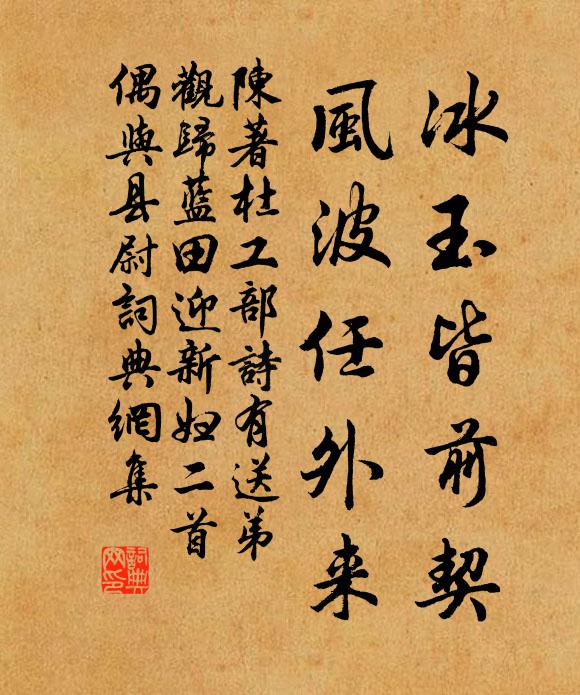 冰玉皆前契
風波任外来
陳著杜工部詩有送弟
觀歸藍田迎新妇二首
偶與县尉詞典網集
詞典
网印